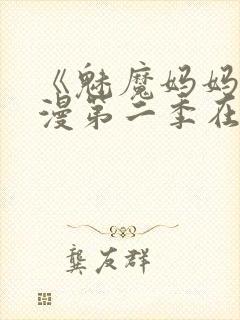 《魅魔妈妈
漫第二季在
龚友群